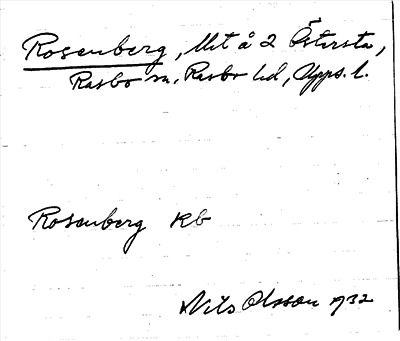 Rosenberg, Ut å 2 Östersta,
Rasbo sn, Rasbo hd, Upps. l.
Rosenberg Kb
Nils Olsson 1932